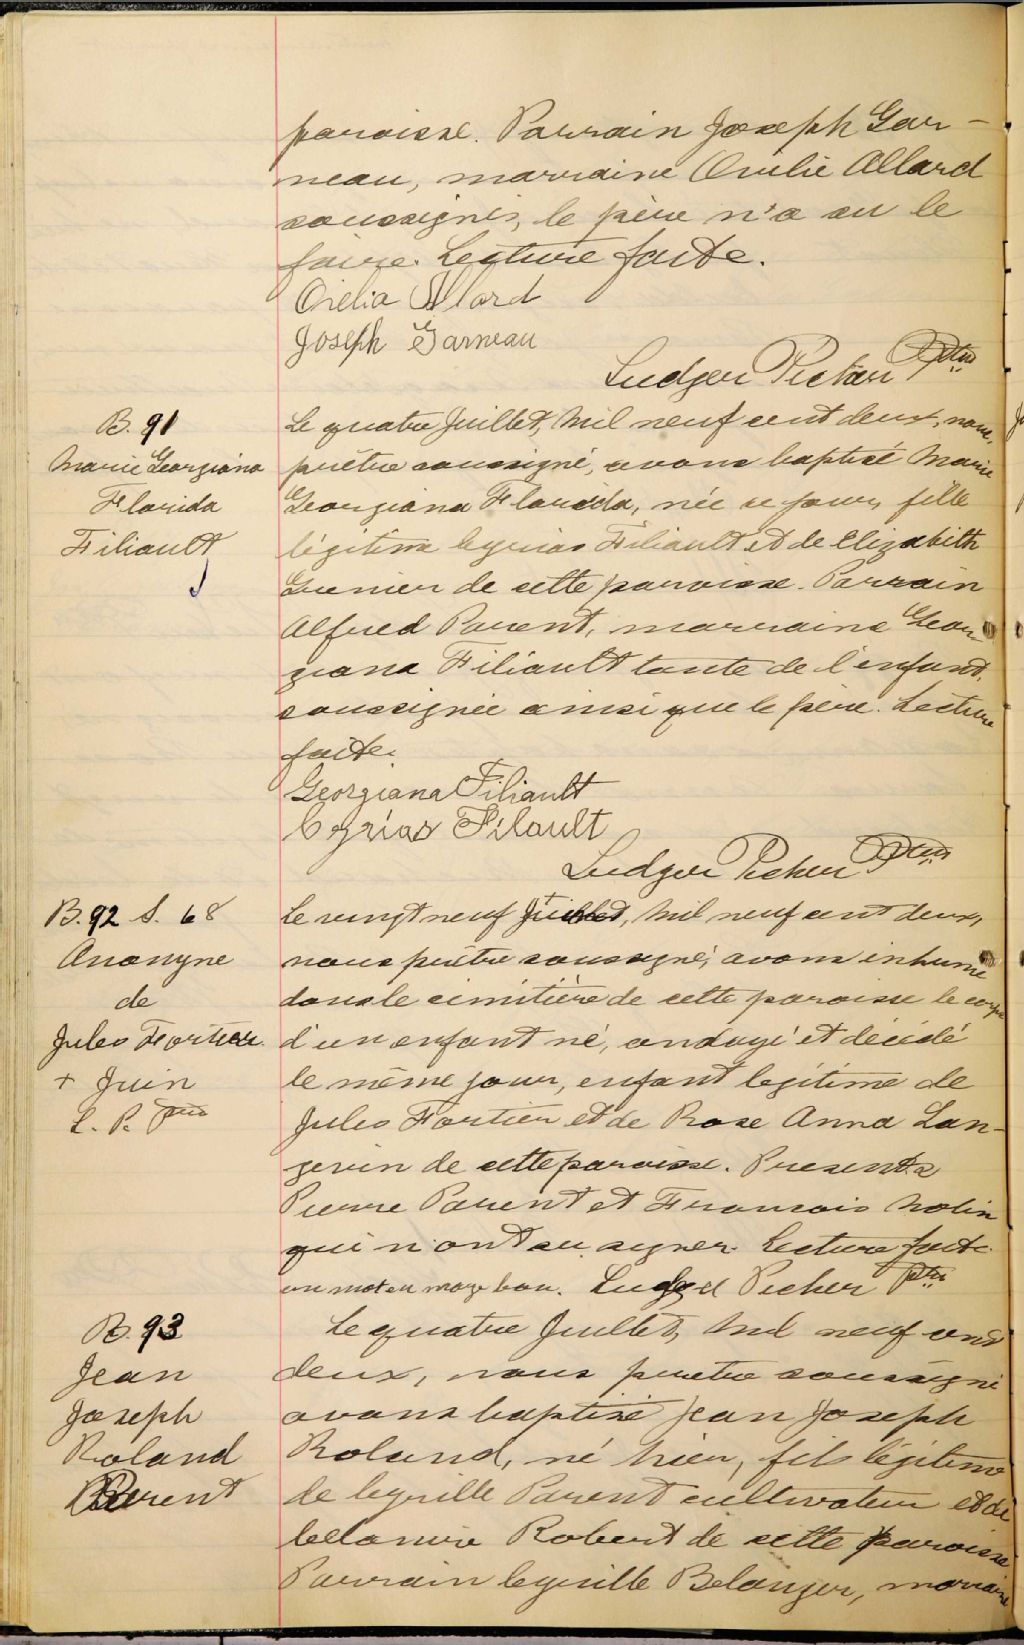 paroisse. Parrain Joseph Gar-
neau, marraine Orilie Allard
soussignés, le père n'a su le
faire. Lecture faite.
Orelia Allard
Joseph Garneau
Ludger Picher Ptre
B. 91
Marie Georgiana
Florida
Filiault
Le quatre Juillet, Mil neuf cent deux, nous,
prêtre soussigné, avons baptisé Marie
Georgiana Florida, née ce jour, fille
légitime Cyrias Filiault et de Elizabeth
Grenier de cette paroisse. Parrain
Alfred Parent, marraine Geor-
giana Filiault tante de l'enfant,
soussignée ainsi que le père. Lecture
faite.
Georgiana Filiault
Cyrias Filault
Ludger Picher Ptre
B. 92 S. 68
Anonyne
de
Jules Fortier
+ Juin
L. P. Ptre
Le vingt neuf Juillet, Mil neuf cent deux,
nous prêtre soussigné, avons inhumé
dans le cimitière de cette paroisse le corps
d'un enfant né, ondoyé et décédé
le même jour, enfant legitime de
Jules Fortier et de Rose Anna Lan-
gevin de cette paroisse. Presents
Pierre Parent et Francois Nolin
qui n'ont su signer. Lecture faite.
un mot en marge bon. Ludger Picher Ptre
B. 93
Jean
Joseph
Roland
Parent
Le quatre Juillet, Mil neuf cent
deux, nous prêtre soussigné
avons baptisé Jean Joseph
Roland, né hier, fils légitime
de Cyrille Parent cultivateur et de
Celanire Robert de cette paroisse
Parrain Cyrille Belanger, marraine